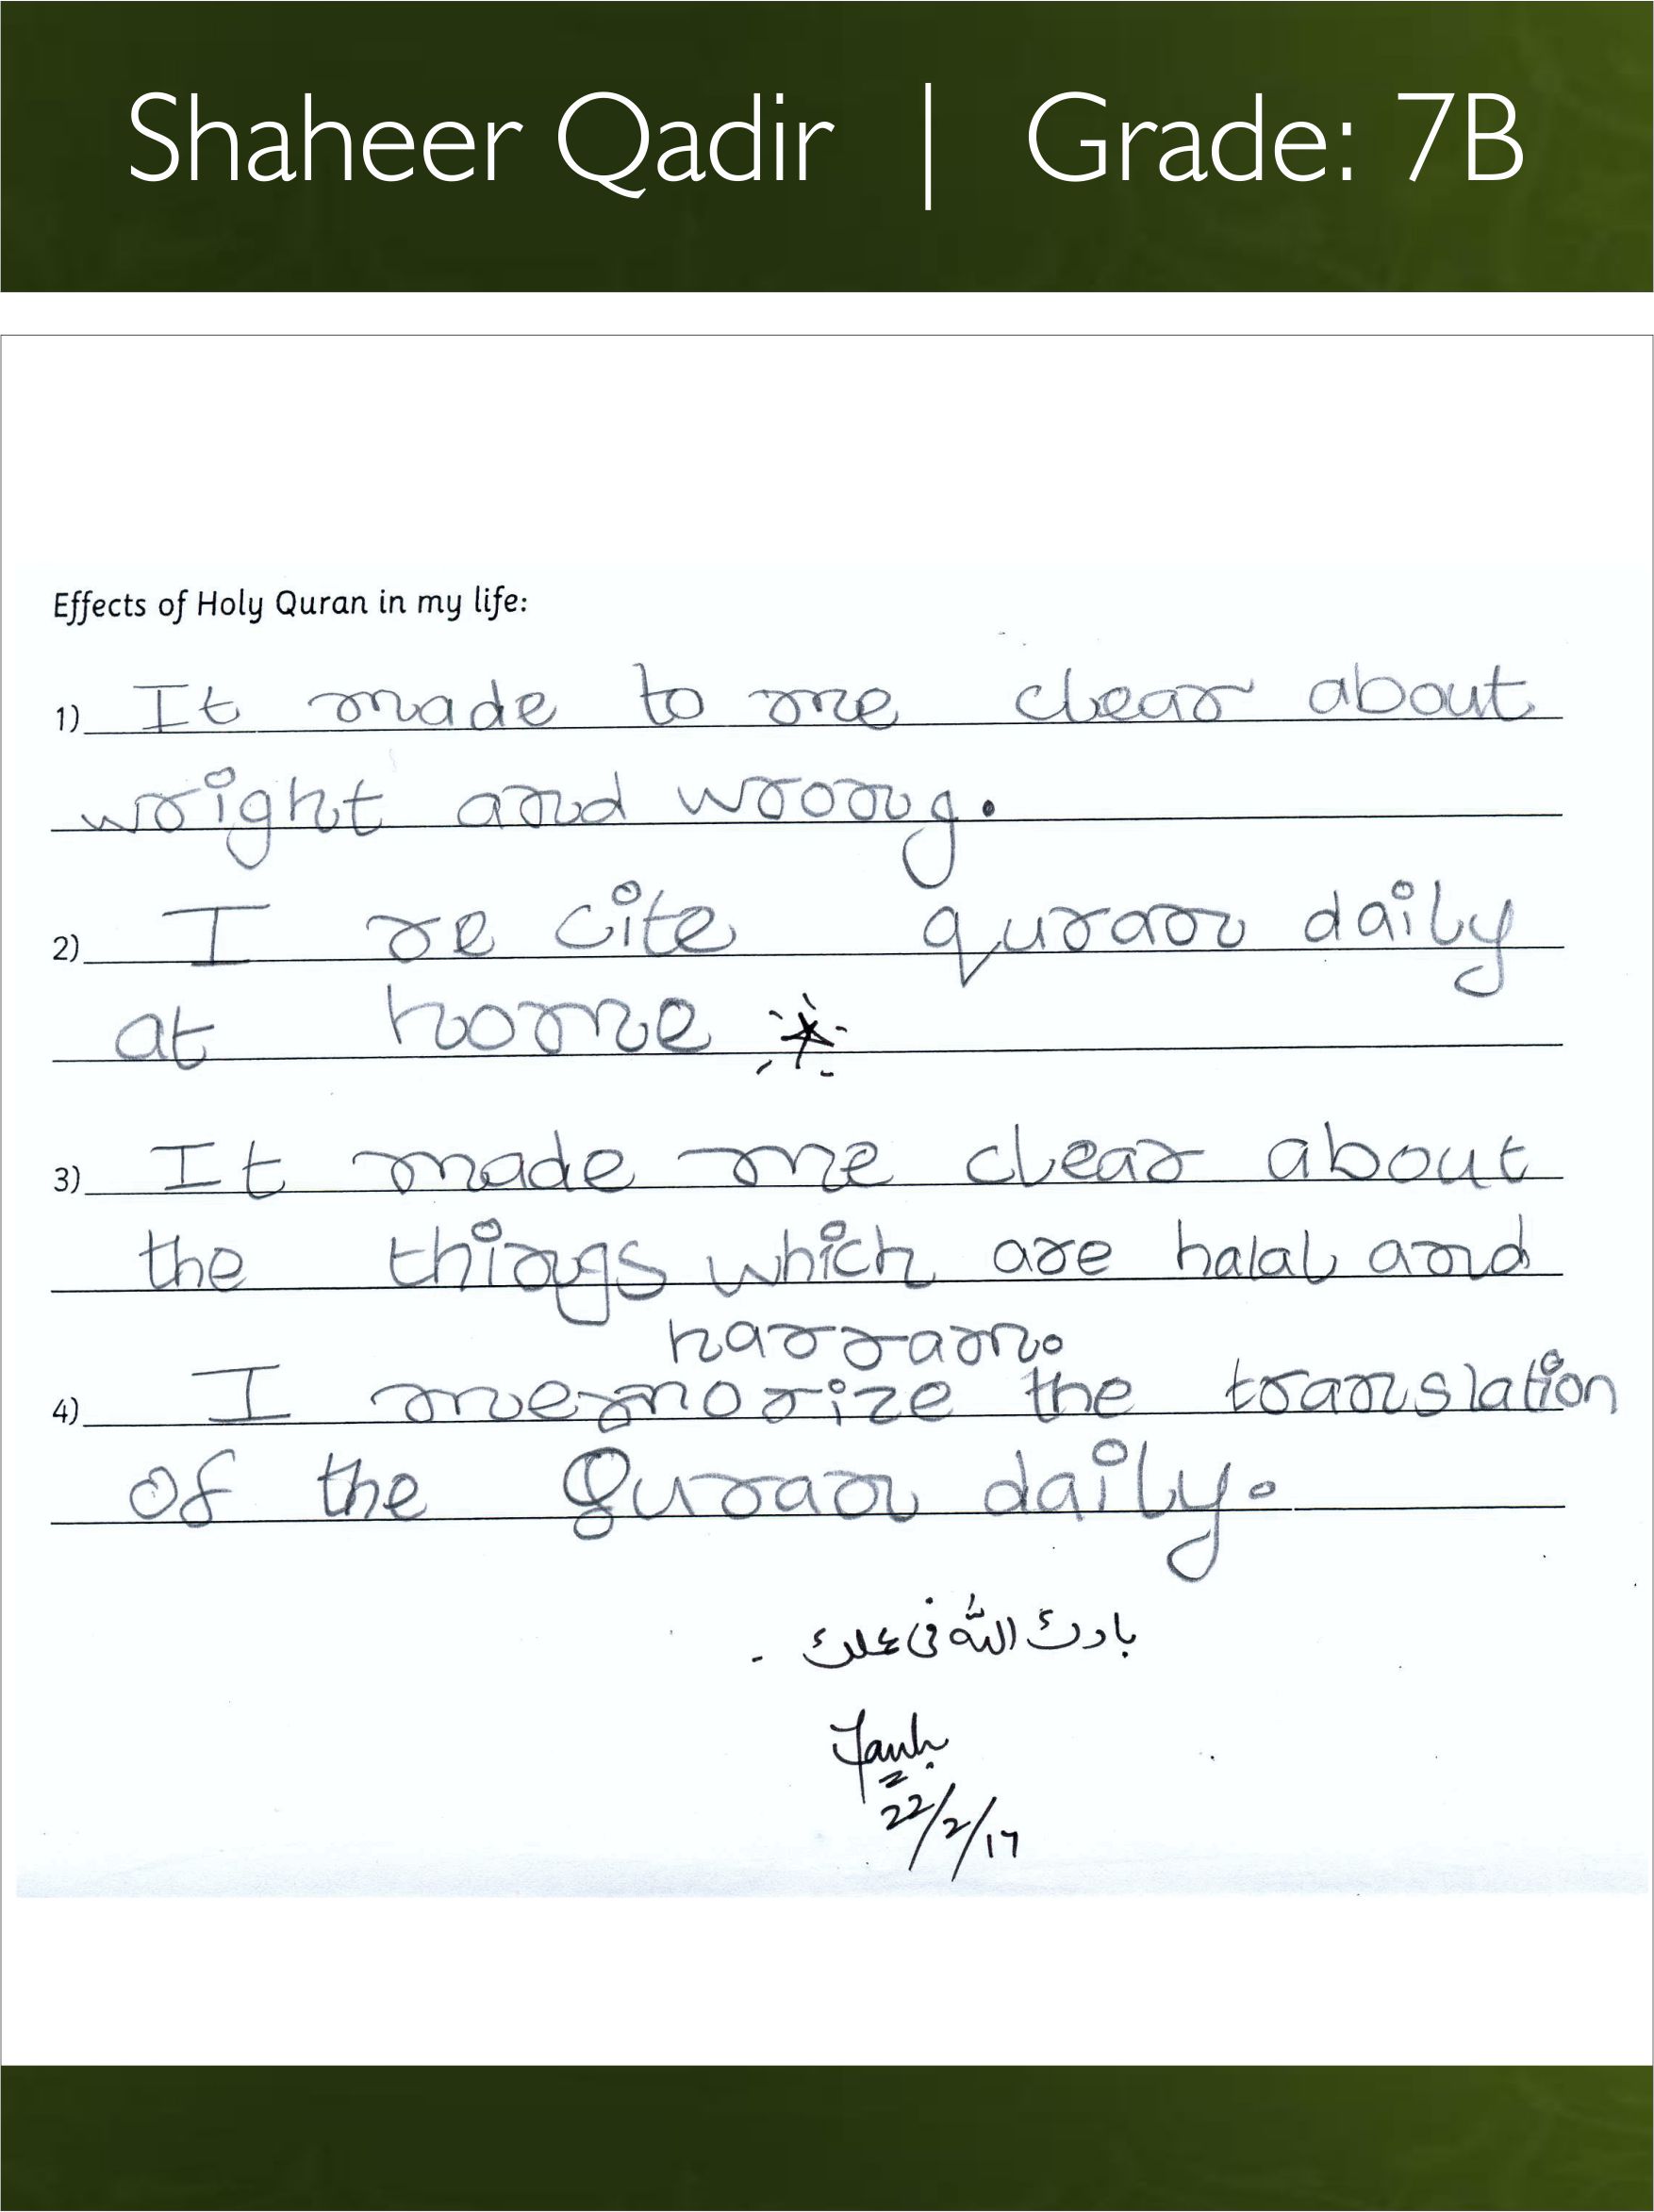 Shaheer Qadir | Grade: 7B
Effects of Holy Quran in my life:
1) It made to me clear about
wright and wrong.
2) I re cite quraan daily
at home
3) It made me clear about
the things which are halal and
harram.
4) I memorize the translation
of the Quraan daily.
بارك اللّٰه فی علمك -
22/2/17